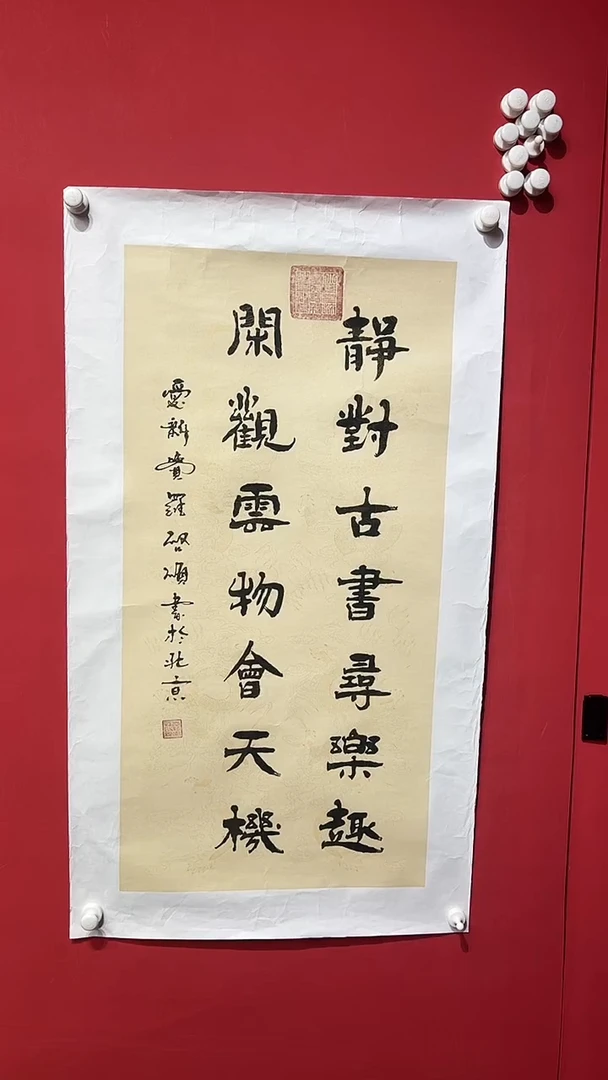 靜對古書尋樂趣
閑觀雲物會天機
愛新覺羅啓頌書於北京